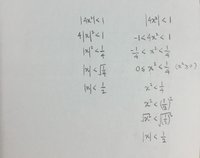 |4x²| < 1
4|x|² < 1
|x|² < 1/4
|x| < √(1/4)
|x| < 1/2
|4x²| < 1
-1 < 4x² < 1
-1/4 < x² < 1/4
0 ≤ x² < 1/4 (x² ≥ 0)
x² < 1/4
x² < (1/2)²
√x² < √(1/2)²
|x| < 1/2